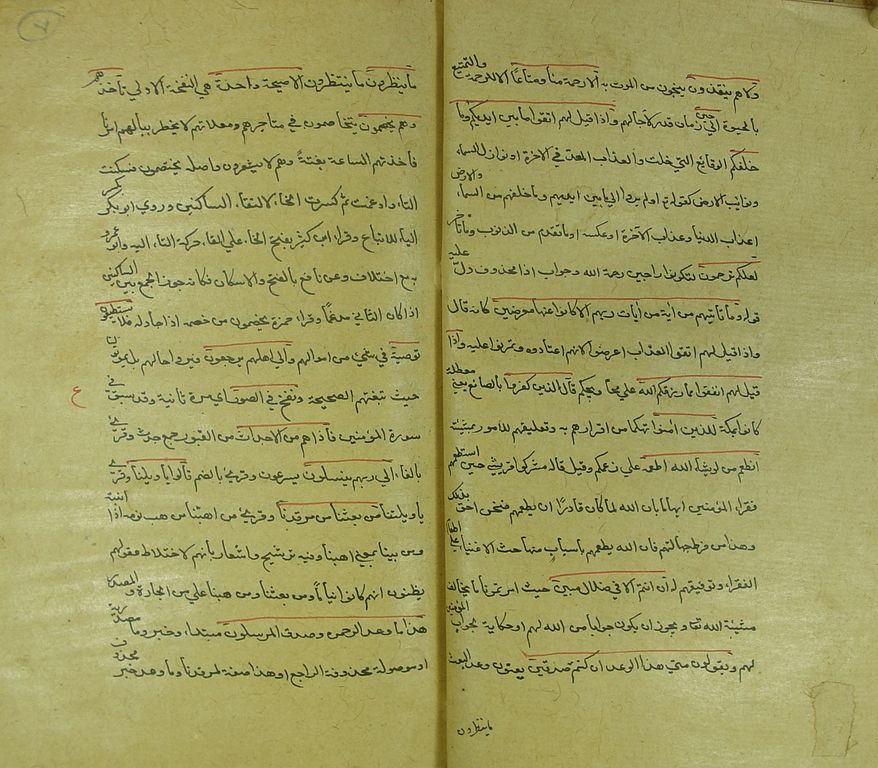 ولا هم ينقذون ينجون من الموت به الا رحمة منا ومتاعا الا لرحمة والتمتيع
بالحيوة الي حين زمان قدر لاجالهم واذا قيل لهم اتقوا ما بين ايديكم وما
خلفكم الوقايع التي خلت والعذاب المعد في الاخرة او نوازل السماء
ونوايب الارض كقوله اولم يروا الي ما بين ايديهم وما خلفهم من السماء والارض
او عذاب الدنيا وعذاب الاخرة او عكسه او ما تقدم من الذنوب وما تأخر
لعلكم ترحمون لتكونوا راجين رحمة الله وجواب اذا محذوف دل عليه
قوله وما تاتيهم من اية من ايات ربهم الا كانوا عنها معرضين كانه قال
واذا قيل لهم اتقوا العذاب اعرضوا لانهم اعتادوه وتمرنوا عليه واذا
قيل لهم انفقوا مما رزقكم الله علي محاويجكم قال الذين كفروا بالصانع يعني معطلة
كانوا بمكة للذين امنوا تهكما من اقرارهم به وتعليقهم للامور بمشيته
انطعم من لو يشاء الله اطعمه علي زعمكم وقيل قاله مشركوا قريش حين استطعمهم
فقراء المؤمنين ايهاما بان الله لما كان قادرًا ان يطعمهم فنحن احق بذلك
وهذا من فرط جهالتهم فان الله يطعم باسباب منها حث الاغنياء علي اطعام
الفقراء وتوفيقهم له ان انتم الا في ضلال مبين حيث امرتمونا ما يخالف
مشيئة الله تعا ويجوز ان يكون جوابا من الله لهم او حكاية لجواب المؤمنين
لهم ويقولون متي هذا الوعد ان كنتم صدقين يعنون وعد البعث
ما ينظرون
ما ينظرون ما ينتظرون الا صيحة واحدة هي النفخة الاولي تأخذهم
وهم يخصمون يتخاصمون في متاجرهم ومعاملاتهم لا يخطر ببالهم امرها
فأخذتهم الساعة بغتةً وهم لا يشعرون واصله يختصمون فسكنت
التاء وادغمت ثم كسرت الخاء لالتقاء الساكنين وروي ابو بكر بكسر
الياء للاتباع وقراء ابن كثير بفتح الخاء علي القاء حركة التاء اليه وابو عمرو
به مع اختلاف وعن نافع بالفتح والاسكان فكانه جوز الجمع بين الساكنين
اذا كان الثاني مدغمًا وقراء حمزة يخصمون من خصمه اذا جادله فلا يستطيعون
توصية في شي من اموالهم ولا الي اهلهم يرجعون فيروا حالهم بل يموتون
حيث تبغتهم الصيحة ونفخ في الصور اي مرة ثانية وقد سبق في
سورة المؤمنين فاذا هم من الاحداث من القبور جمع جدث وقرئ
بالفاء الي ربهم ينسلون يسرعون وقرئ بالضم قالوا يا ويلنا وقرئ
يا ويلتنا من بعثنا من مرقدنا وقرئ من اهبنا من هب من نومه اذا انتبه
ومن هبنا بمعني اهبنا وفيه ترشيح واشعار بأنهم لاختلاط عقولهم
يظنون انهم كانوا نياماً ومن بعثنا ومن هبنا علي من الجارة والمصدر
هذا ما وعد الرحمن وصدق المرسلون مبتداء وخبر وما مصدرية
او موصولة محذوفة الراجع او هذا صفة لمرقدنا وما وعد خبر محذوف
ع